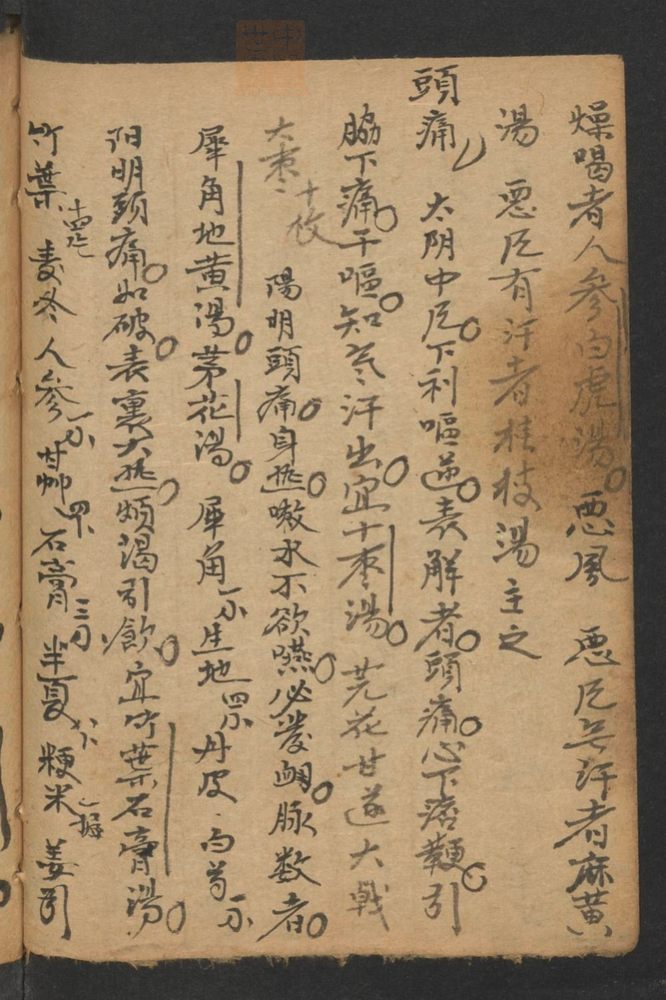 燥喝者人參白虎湯。惡風 惡风無汗者麻黃
湯 惡风有汗者桂枝湯主之
頭痛 太阴中风。下利嘔逆。表解者。頭痛。心下痞鞕。引
脇下痛。干嘔短气。汗出。宜十枣湯。芫花甘遂大戟
大枣十枚
陽明頭痛。身热。嗽水不欲嚥。必發衂。脉数者。
犀角地黄湯。茅花湯。犀角一分生地四分丹皮白芍一分
阳明頭痛。如破。表裏大热。煩渴引飲。宜竹葉石膏湯。
竹葉 麦冬人參 甘艸 石膏 半夏 粳米一撮姜引